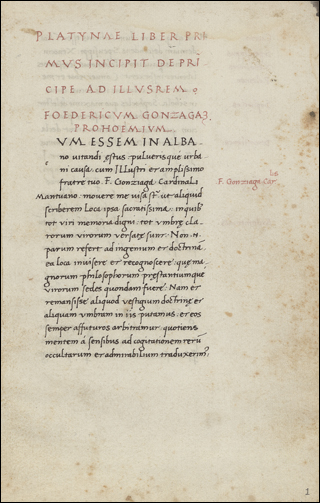 PLATYNAE LIBER PRI
MVS INCIPIT DE PRI
CIPE AD ILLVSREM
FOEDERICVM GONZAGAƷ
PROHOEMIVM
VM ESSEM IN ALBA
c
no vitandi estus pulverisque urba
ni causa cum Illustri et amplissimo
fratre tuo F. Gonziaga Cardinali
Mantuano movere me visa sunt ut aliquid
scriberem loca ipsa sacratissima inquib
tot viri memoria digni tot umbre cla
rorum virorum versate sunt Non
parum refert ad ingenium et doctrinã
ea loca invisere et recognoscere que ma
gnorum philosophorum prestantiumque
virorum sedes quondam fuere Nam et
remansisse aliquod vestigium doctrine et
aliquam umbram in iis putamus et eos
semper affuturos arbitramur quotiens
mentem á sensibus ad cogitationem rerũ
occultarum et admirabilium traduxerim
F. Gonziaga Car
lis
1